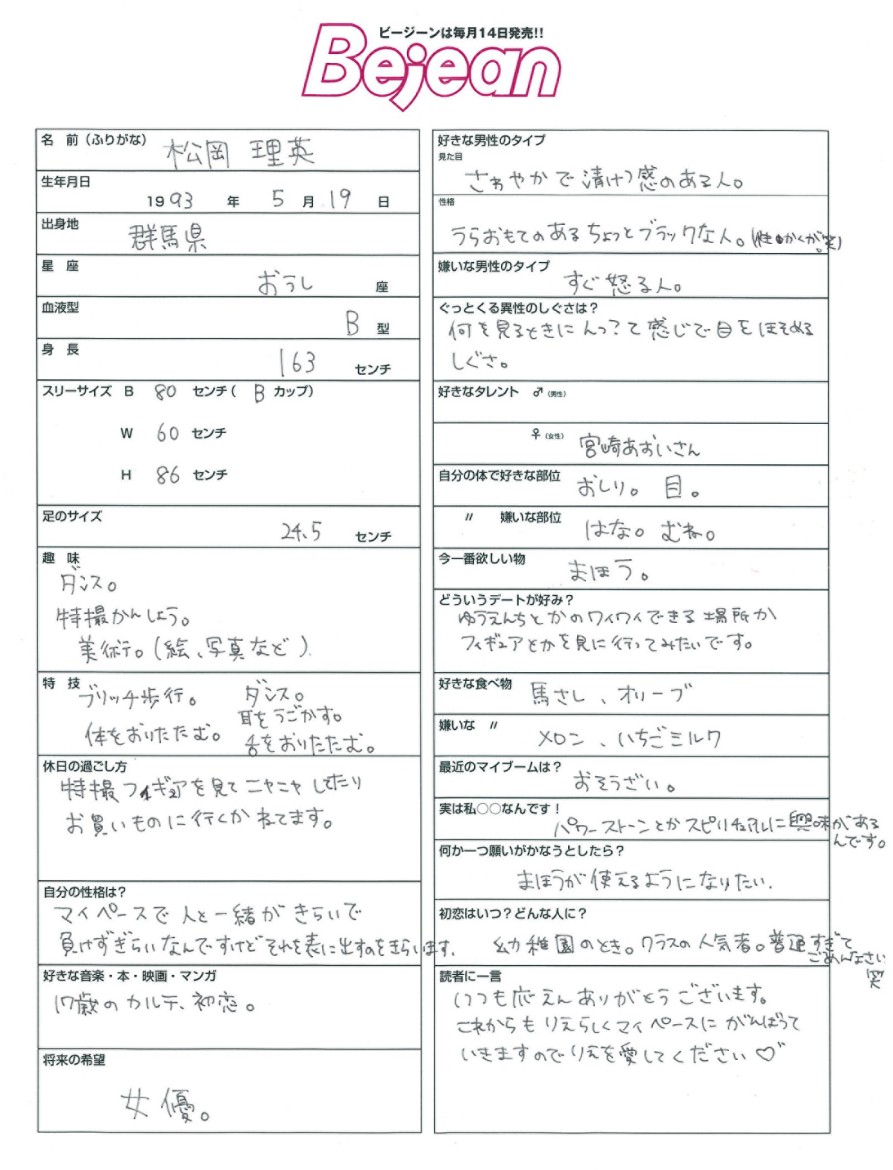 ビージーンは毎月14日発売!!
Bejean
名 前（ふりがな） 松岡 理英
生年月日
1993 年 5 月 19 日
出身地
群馬県
星 座
おうし 座
血液型
B 型
身 長
163 センチ
スリーサイズ B 80 センチ( B カップ)
W 60 センチ
H 86 センチ
足のサイズ
24.5 センチ
趣 味
ダンス。
特撮かんしょう。
美術。(絵、写真など)
特 技
ブリッチ歩行。 ダンス。
耳をうごかす。
体をおりたたむ。 舌をおりたたむ。
休日の過ごし方
特撮フィギュアを見てニヤニヤしてたり
お買いものに行くかねてます。
自分の性格は？
マイペースで人と一緒がきらいで
負けずぎらいなんですけどそれを表に出すのをきらいます.
好きな音楽・本・映画・マンガ
17歳のカルテ、初恋。
将来の希望
女優。
好きな男性のタイプ
見た目
さわやかで清けつ感のある人。
性格
うらおもてのあるちょっとブラックな人。(性かくが。笑)
嫌いな男性のタイプ
すぐ怒る人。
ぐっとくる異性のしぐさは？
何を見るときにんっ?て感じで目をほそめる
しぐさ。
好きなタレント ♂（男性）
♀（女性） 宮崎あおいさん
自分の体で好きな部位
おしり。 目。
〃 嫌いな部位
はな。 むね。
今一番欲しい物
まほう。
どういうデートが好み？
ゆうえんちとかのワイワイできる場所か
フィギュアとかを見に行ってみたいです。
好きな食べ物
馬さし、オリーブ
嫌いな 〃
メロン、いちごミルク
最近のマイブームは？
おそうざい。
実は私○○なんです！
パワーストーンとかスピリチュアルに興味がある
んです。
何か一つ願いがかなうとしたら？
まほうが使えるようになりたい.
初恋はいつ？どんな人に？
幼稚園のとき。クラスの人気者。普通すぎて
ごめんなさい
笑
読者に一言
いつも応えんありがとうございます。
これからもりえらしくマイペースにがんばって
いきますのでりえを愛してください♡